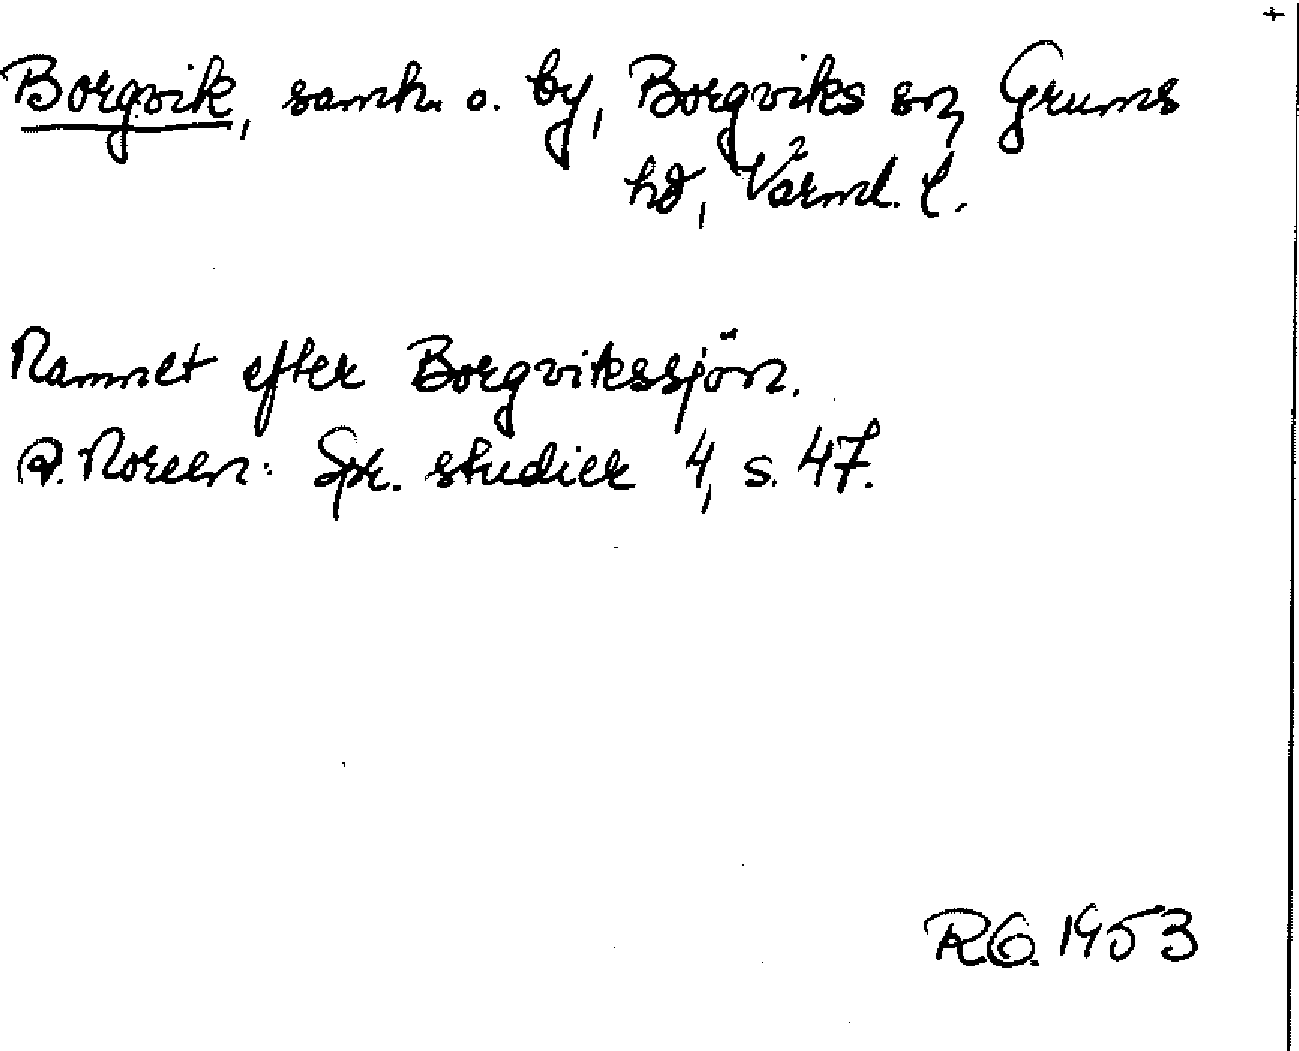 Borgvik, samh. o. by, Borgviks sn, Grums
hd, Värml. l.
Namnet efter Borgvikssjön.
A. Noreen: Spr. studier 4, s. 47.
RO. 1953